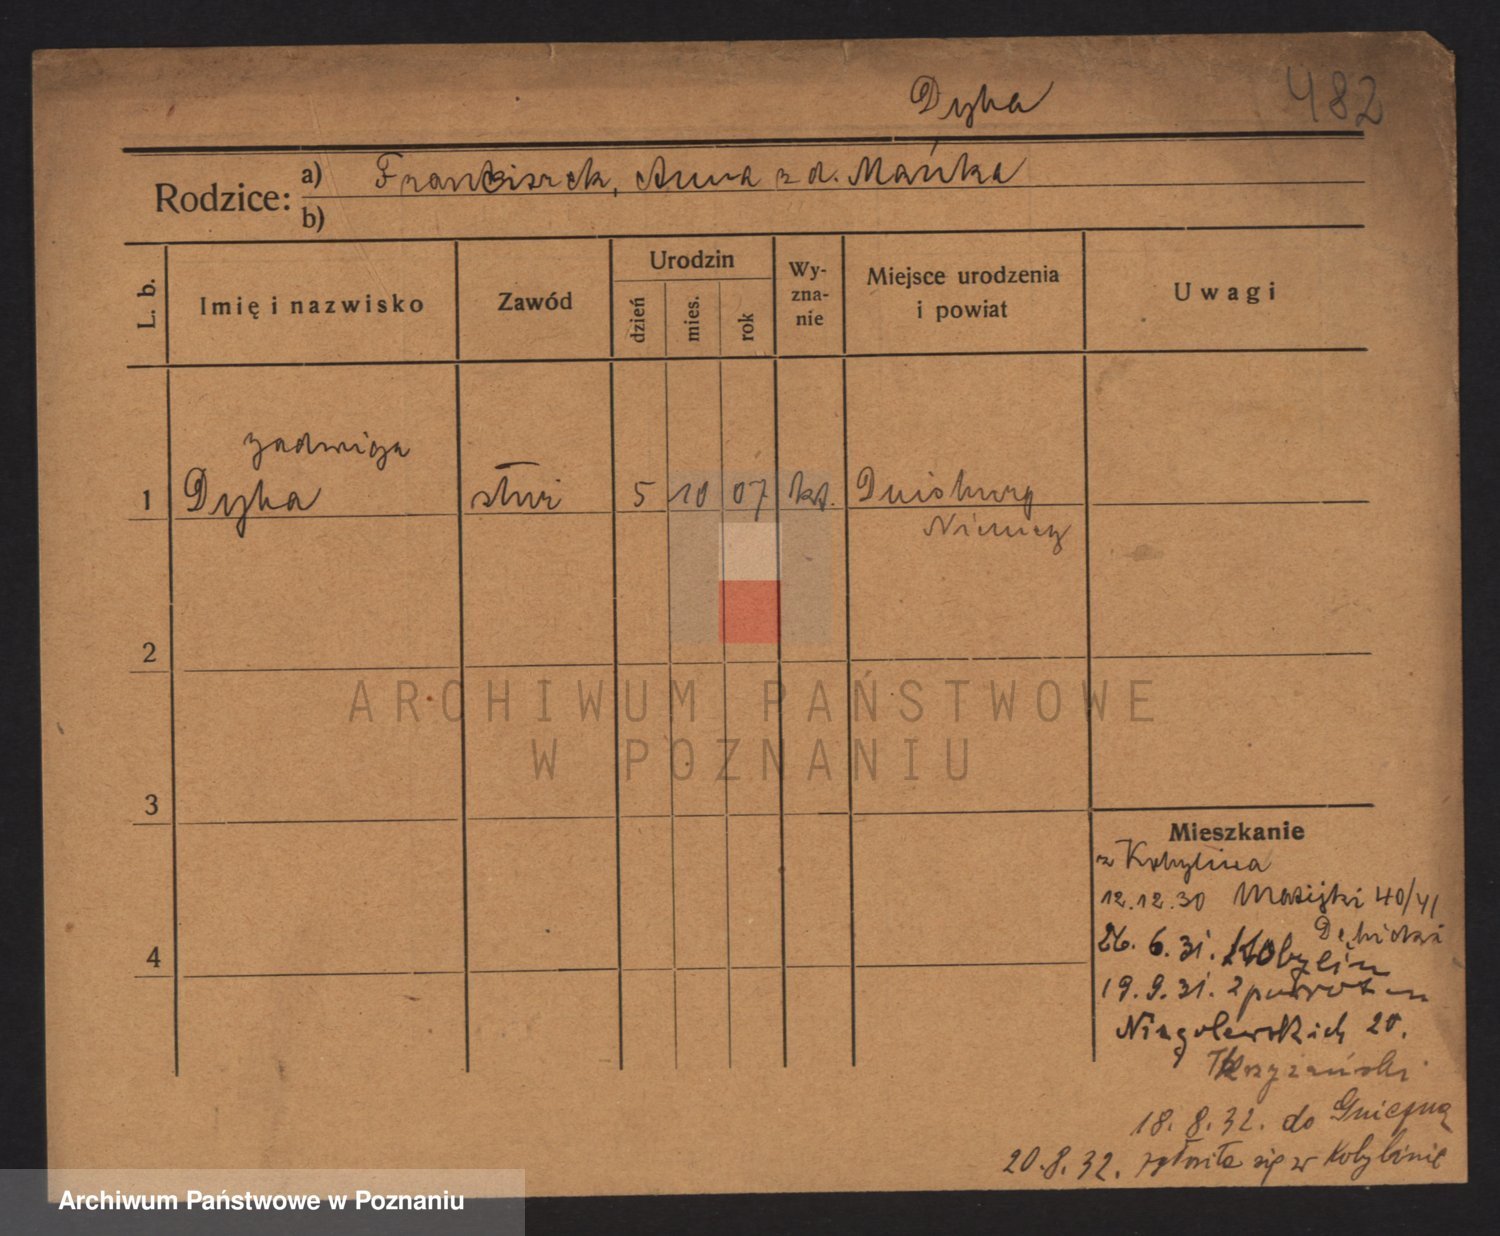 Dyba
482
Rodzice:
a) Franciszek, Anna z d. Mańka
b)
L. b.
Imię i nazwisko
Zawód
Urodzin
dzień
mies.
rok
Wy-
zna-
nie
Miejsce urodzenia
i powiat
Uwagi
Jadwiga
1 Dyba służ 5 10 07 kat. Duisburg
Niemcy
2
ARCHIWUM PAŃSTWOWE
W POZNANIU
3
4
Mieszkanie
z Kobylina
12.12.30 Matejki 40/41
26. 6. 31. Kobylin
19. 9. 31. z powrotem
Niegolewskich 20.
Krzyżański
18. 8. 32. do
20. 8. 32. zgłosiła się w Kobylinie
Archiwum Państwowe w Poznaniu